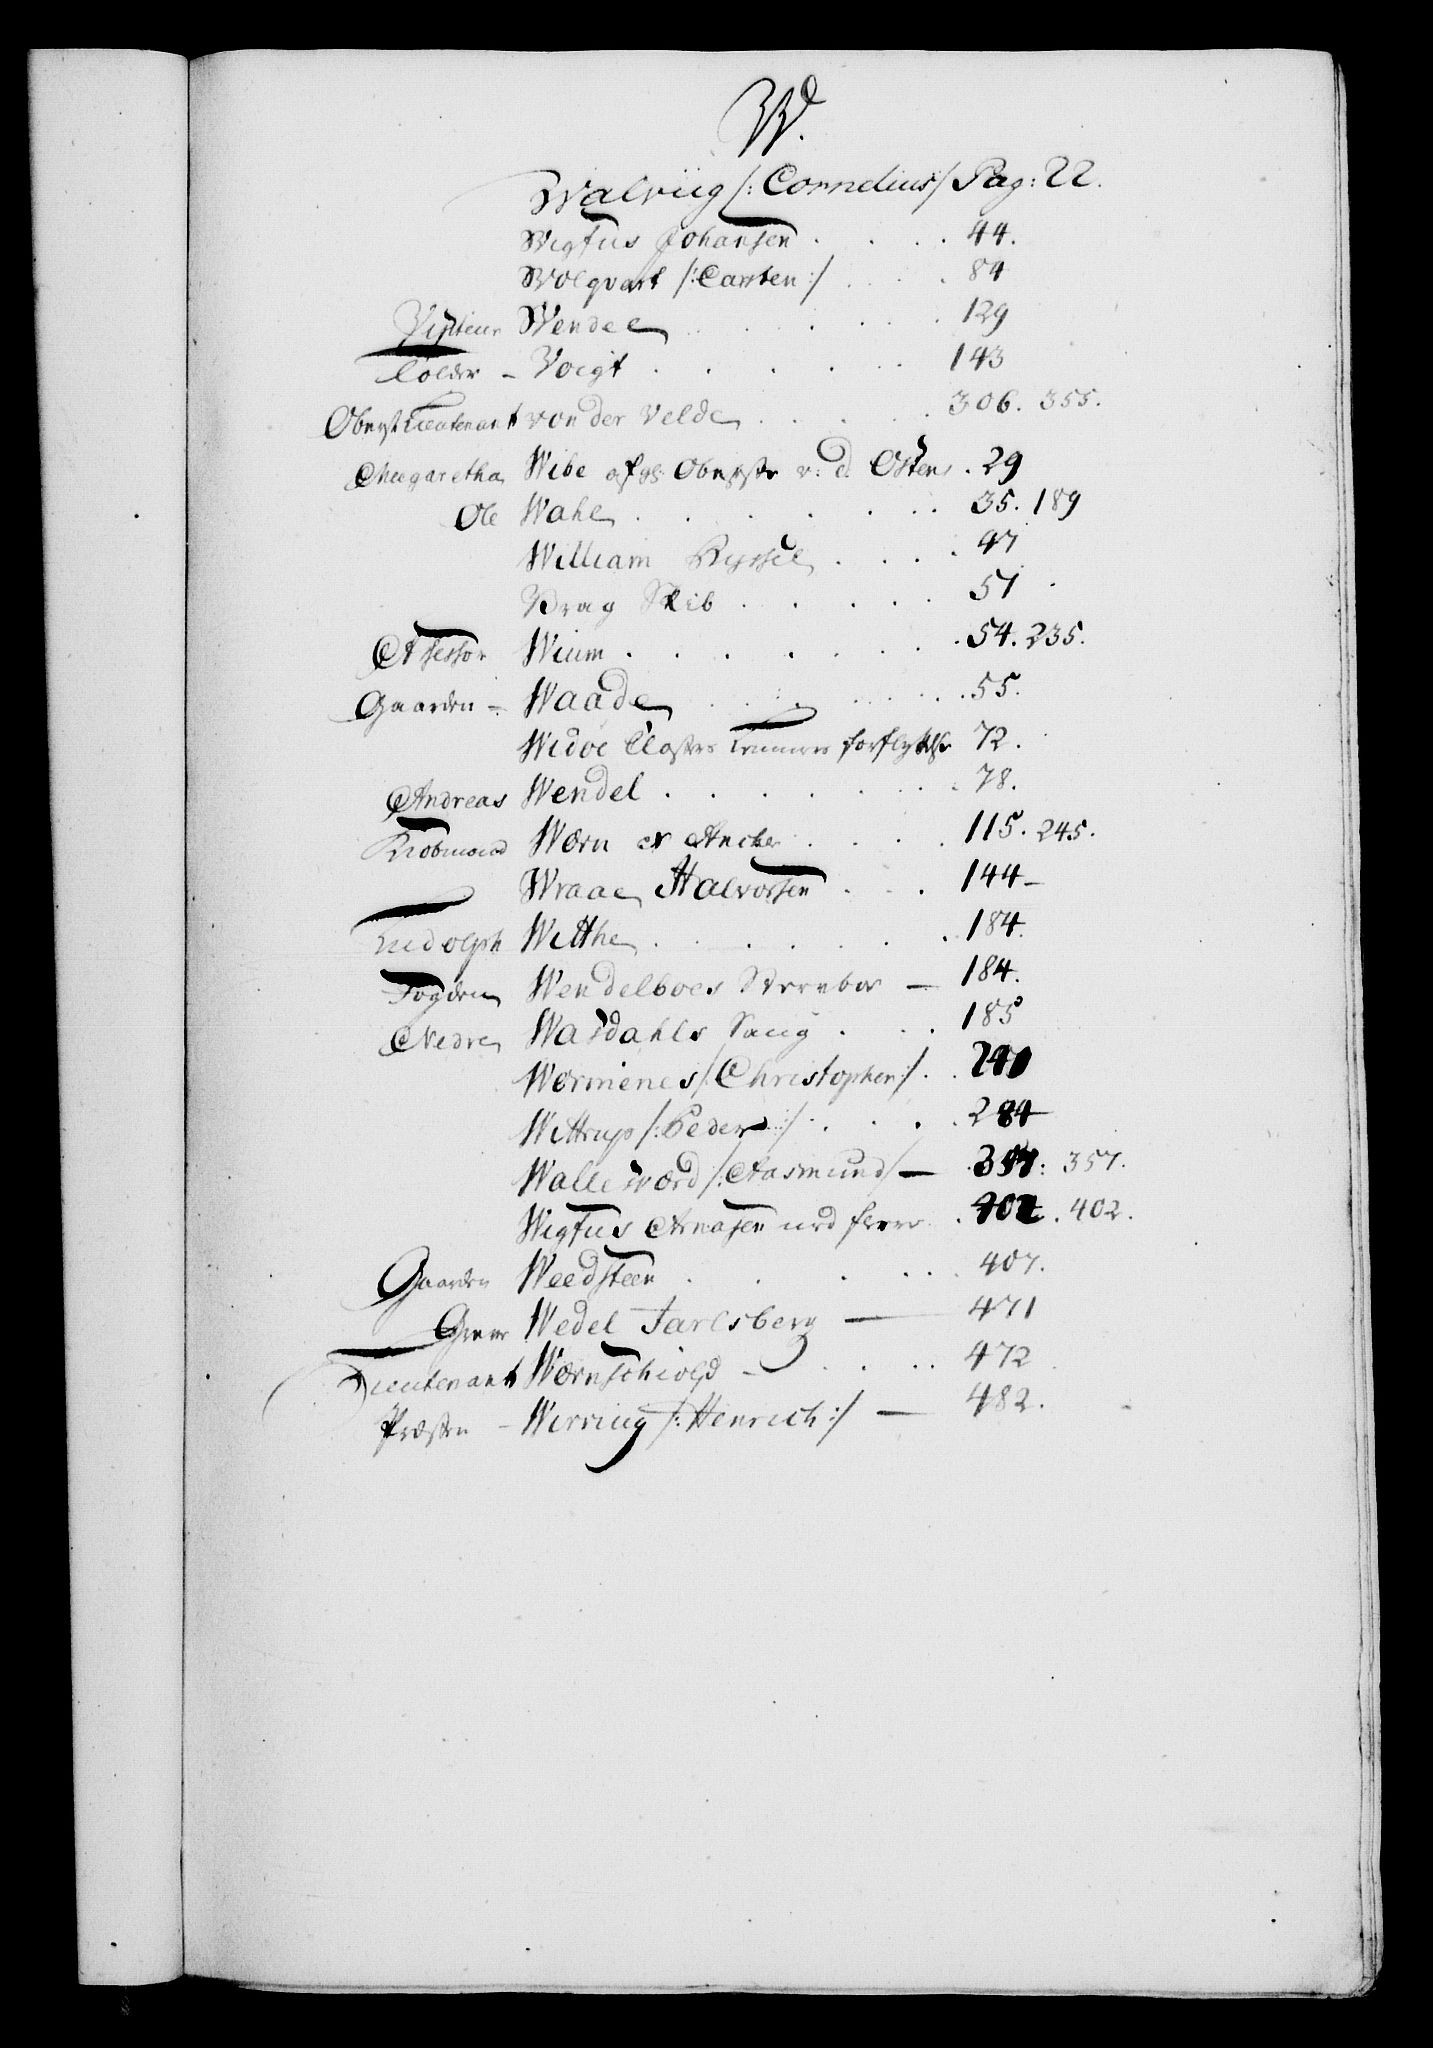 W.
Walviig /: Cornelius / Pag: 22.
Wigfus Johansen . . . . 44.
Wolqvart /: Carsten :/ . . . 84
Visiteur Wendel . . . . . 129
Told: - Voigt . . . . . 143
Oberst Lieutenant von der Velde . . . . 306. 355.
Margaretha Wibe Oberste v: d: Osten . 29
Ole Wahl . . . . . . . 35. 189
William Kyssel . . . . 47
Vrag Skib . . . . . 51
Assessor Wium . . . . . . . 54. 235.
Gaarden - Waade . . . . . 55.
Widøe Closters forflyttelse 72.
Andreas Wendel . . . . . . 78.
Kiøbmand Wærn & Ancher . . . . 115. 245.
Wraae Halvorsen . . . 144
Ludolph Witthe . . . . . . 184.
Fogden Wendelboes Sterrboe — 184.
Nedre Wasdahls Saug . . . 185
Wormenes /: Christopher :/ . . 240
Wittrup /: Peder :/ . . . . 284
Walleværd /: Aasmund / — . 357.
Wigfus Arnasen med fleere . . 402.
Gaarden Weedsteen . . . . . 407.
Grev Wedel Jarlsberg — 471
Lieutenant Wærnschiold - . . . . 472
Præsten - Wirring /: Henrich :/ — 482.